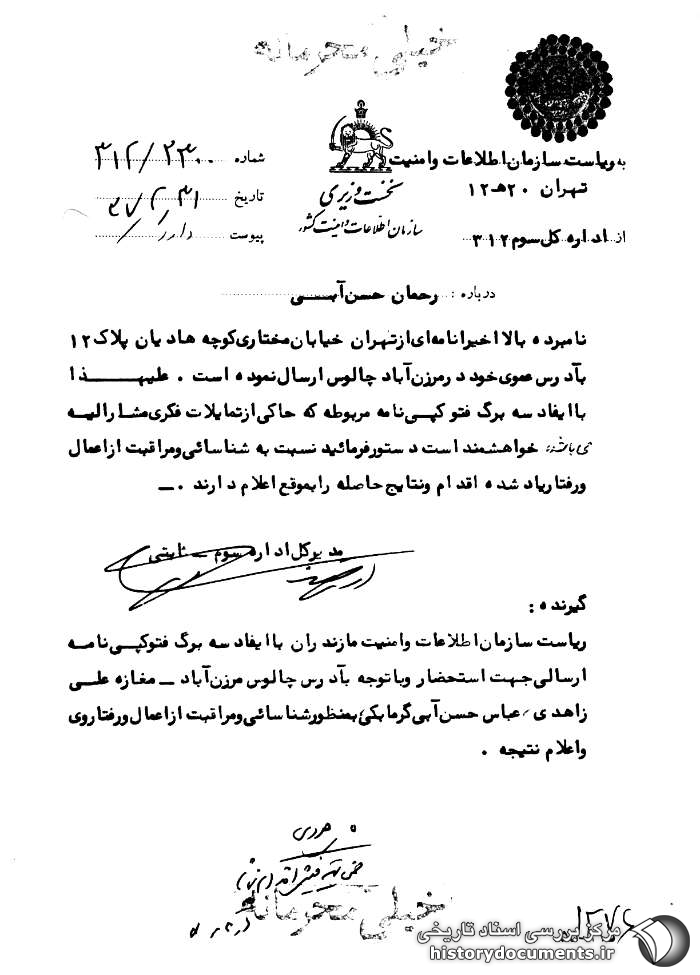 خیلی محرمانه
به ریاست سازمان اطلاعات وامنیت
تهران ۲۰ هـ ۱۲
از اداره کل سوم ۳۱۲
نخست وزیری
سازمان اطلاعات و امنیت کشور
شماره ۳۱۲/۲۳۰۰
تاریخ ۳۷/۲/۳۱
پیوست دارد
درباره : رحمان حسن آبـــی
نامبرده بالا اخیرا نامه‌ای از تهران خیابان مختاری کوچه هادیان پلاک ۱۲
بآدرس عموی خود در مرزن‌آباد چالوس ارسال نموده است . علیهـــذا
با ایفاد سه برگ فتوکپی نامه مربوطه که حاکی از تمایلات فکری مشارالیه
می باشد خواهشمند است دستور فرمائید نسبت به شناسائی ومراقبت از اعمال
و رفتار یاد شده اقدام ونتایج حاصله را بموقع اعلام دارند .ــ
مدیر کل اداره سوم ــ ثابتی
گیرنده :
ریاست سازمان اطلاعات وامنیت مازندران با ایفاد سه برگ فتوکپی نامه
ارسالی جهت استحضار وباتوجه بآدرس چالوس مرزن‌آباد ــ مغازه علی
زاهدی، عباس حسن‌آبی گرمابکی بمنظور شناسائی ومراقبت از اعمال ورفتار وی
واعلام نتیجه .
خیلی محرمانه
مرکز بررسی اسناد تاریخی
historydocuments.ir